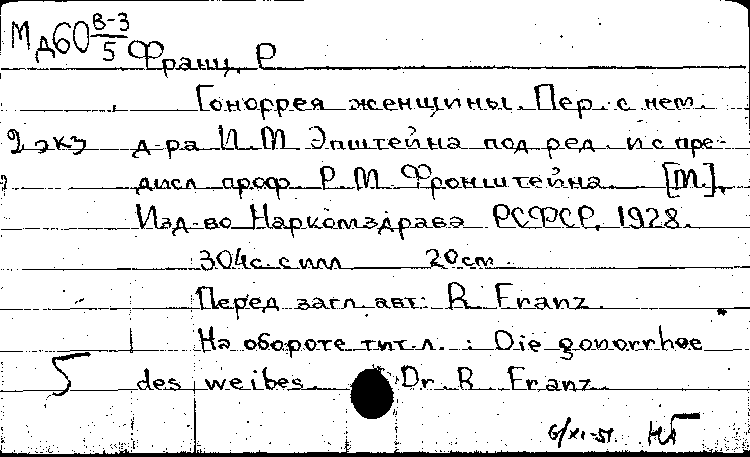 Мд60 В-3/5
Франц, Р
Гоноррея женщины. Пер. с нем.
2 экз д-ра И. М. Эпштейна под ред. и с пре-
дисл проф Р. М. Фронштейна. [М.],
Изд-во Наркомздрава РСФСР, 1928.
304с. с илл 20см.
Перед загл. авт: R. Franz.
На обороте тит. л. : Die gonorrhoe
5 des weibes. Dr. R. Franz.
6/XI-51. НГ